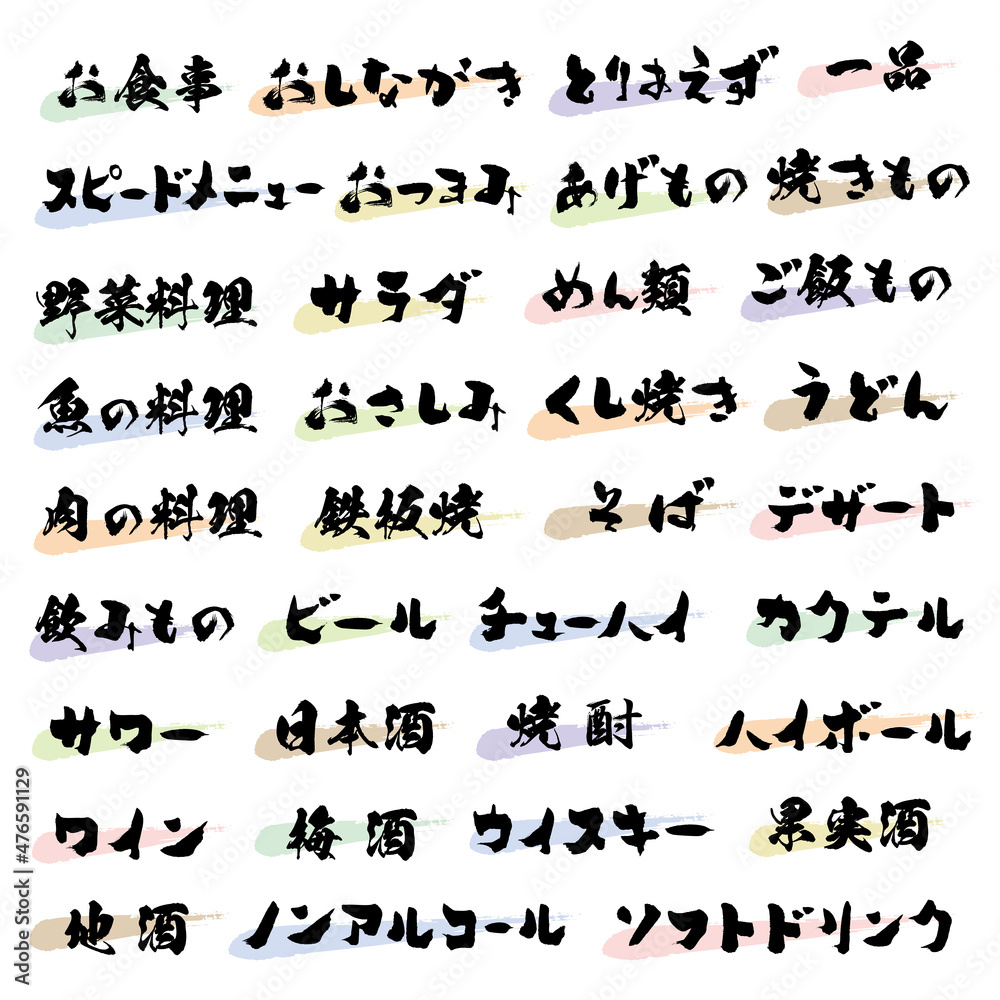 お食事 おしながき とりまえず 一品
スピードメニュー おつまみ あげもの 焼きもの
野菜料理 サラダ めん類 ご飯もの
魚の料理 おさしみ くし焼き うどん
肉の料理 鉄板焼 そば デザート
飲みもの ビール チューハイ カクテル
サワー 日本酒 焼酎 ハイボール
ワイン 梅酒 ウイスキー 果実酒
地酒 ノンアルコール ソフトドリンク
Adobe Stock | #476591129